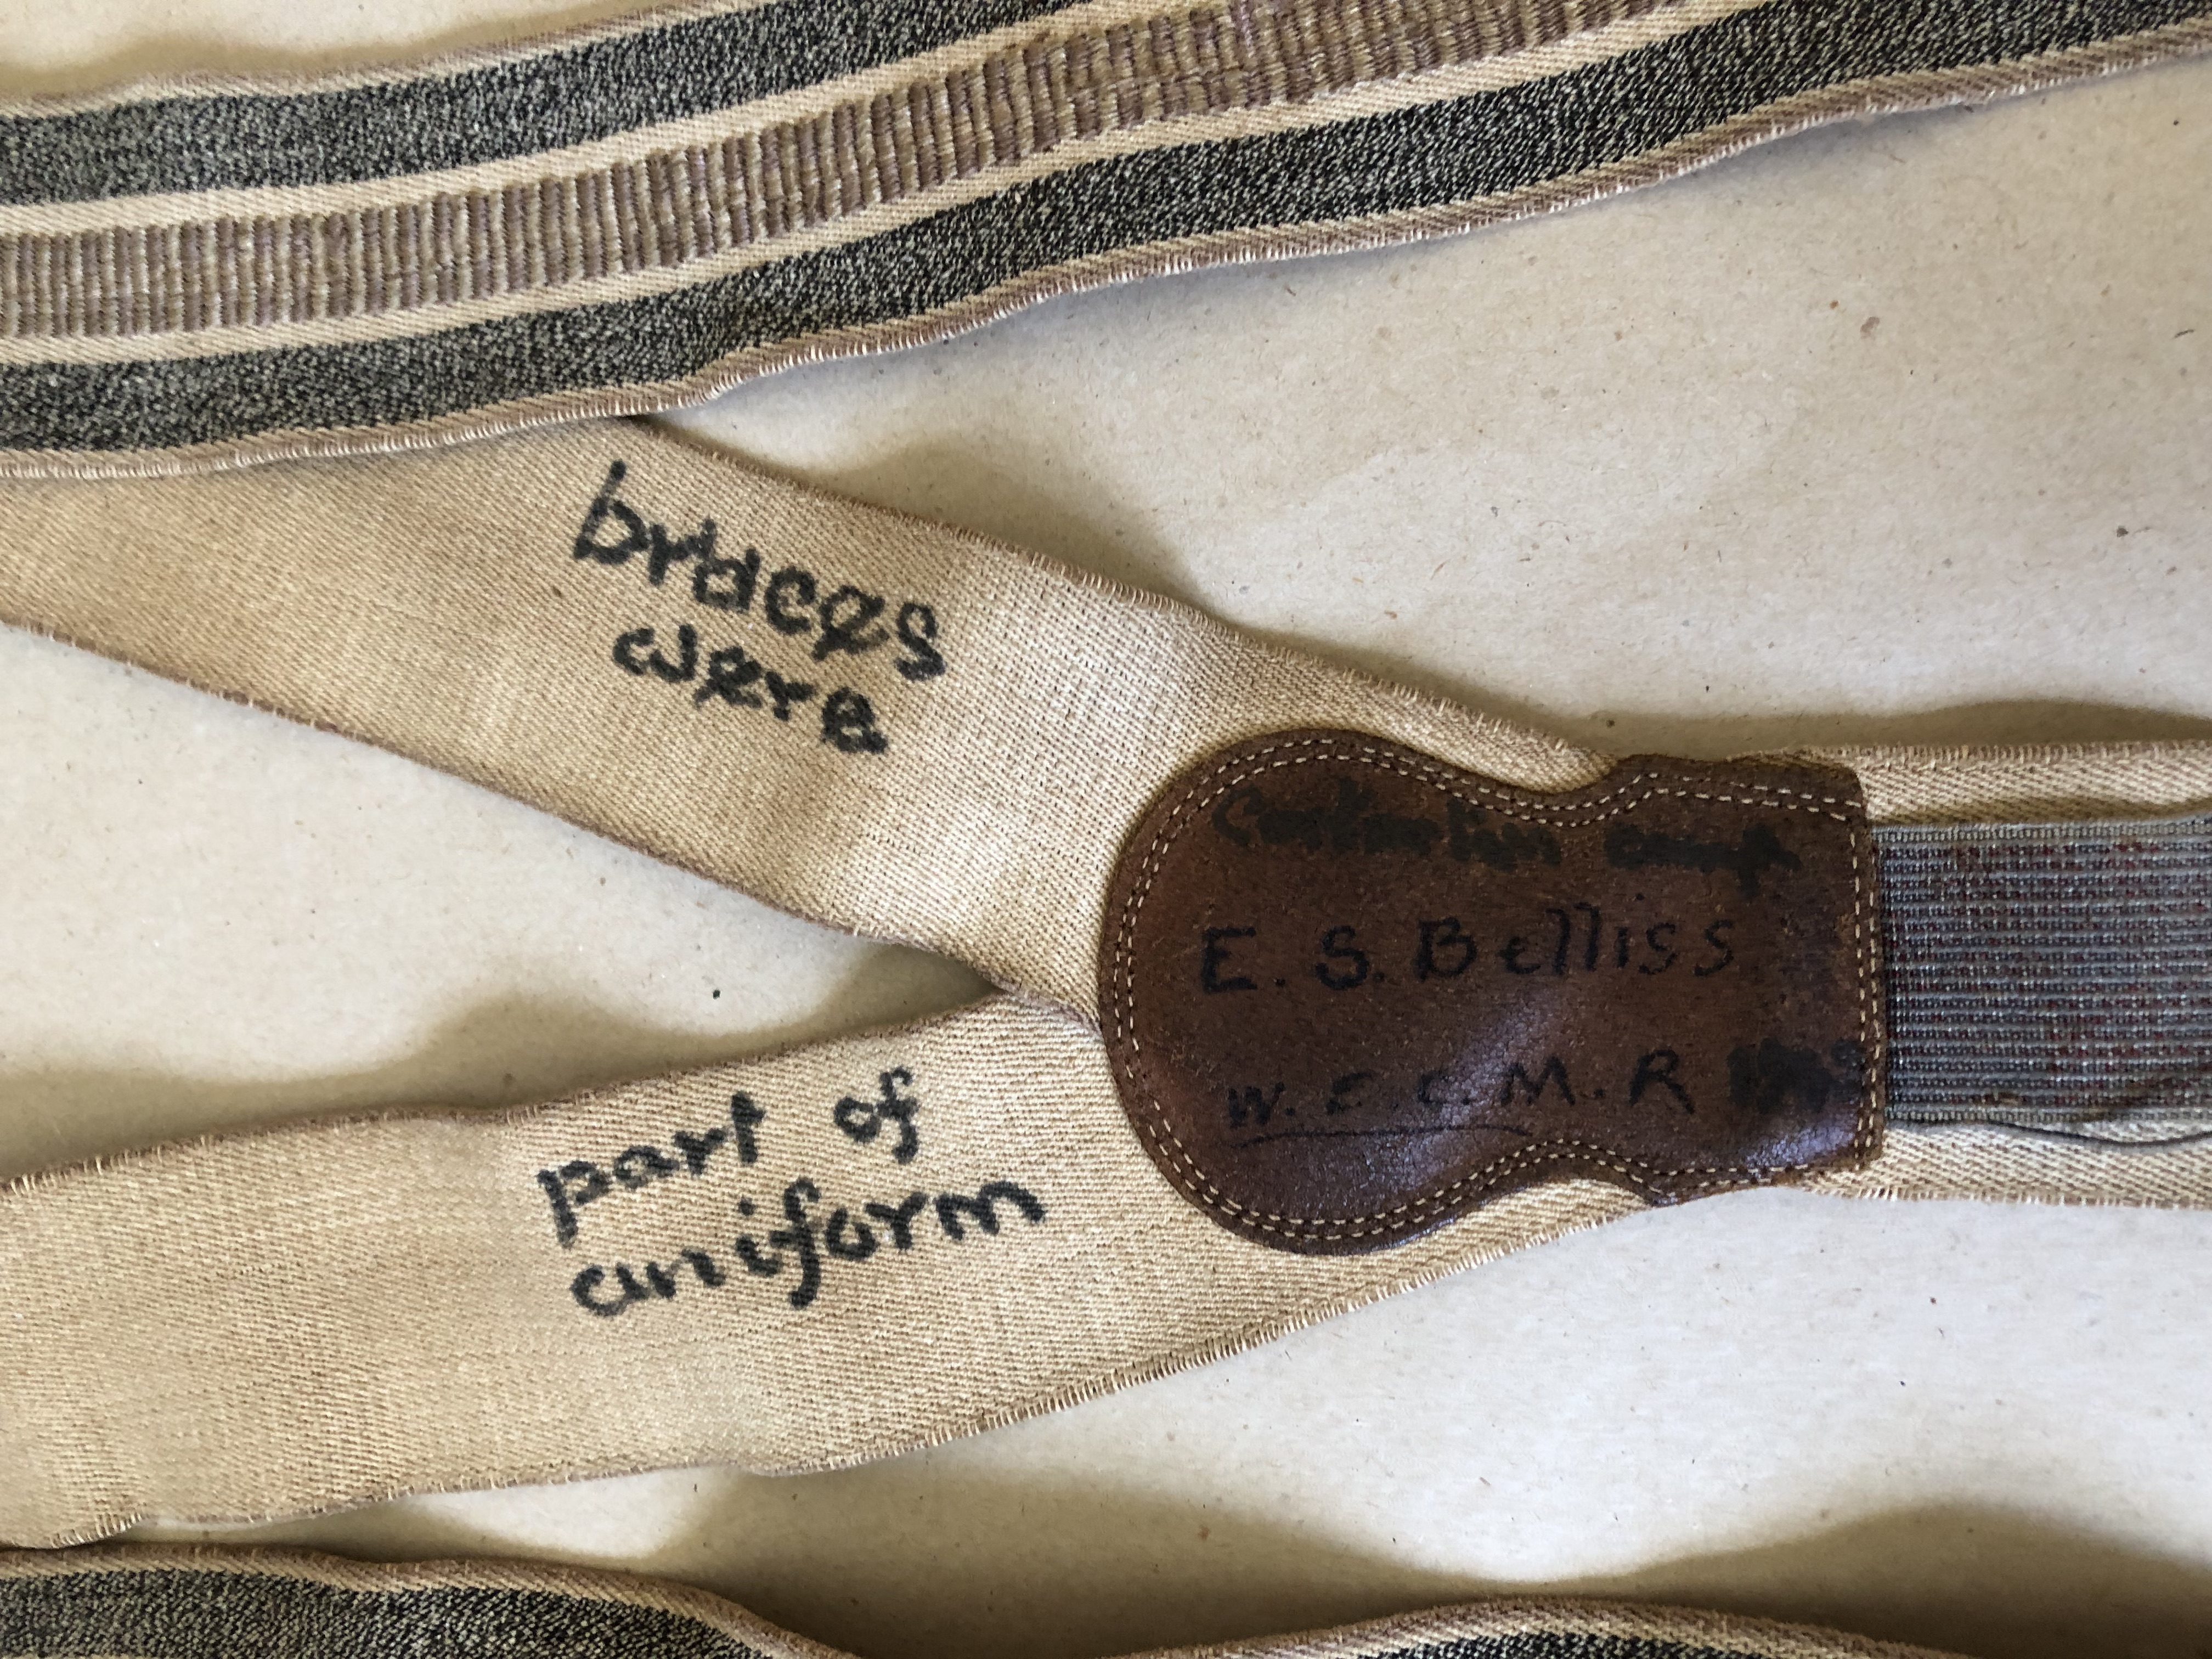 braces
were
part of
uniform
E. S. Bellis
W. E. C. M. R